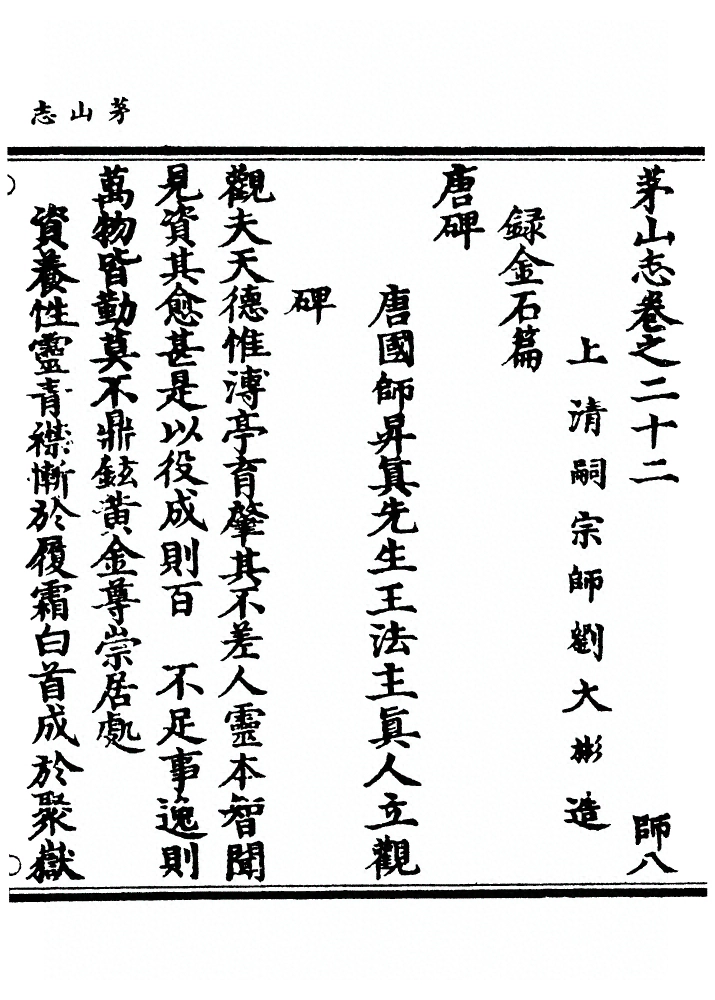 茅山志
茅山志卷之二十二 師八
上清嗣宗師劉大彬造
録金石篇
唐碑
唐國師昇真先生王法主真人立觀
碑
觀夫天德惟溥亭育肇其不差人靈本智聞
見資其愈甚是以役成則百 不足事逸則
萬物皆勤莫不鼎鉉黄金尊崇居處
資養性靈青襟慚於履霜白首成於聚嶽